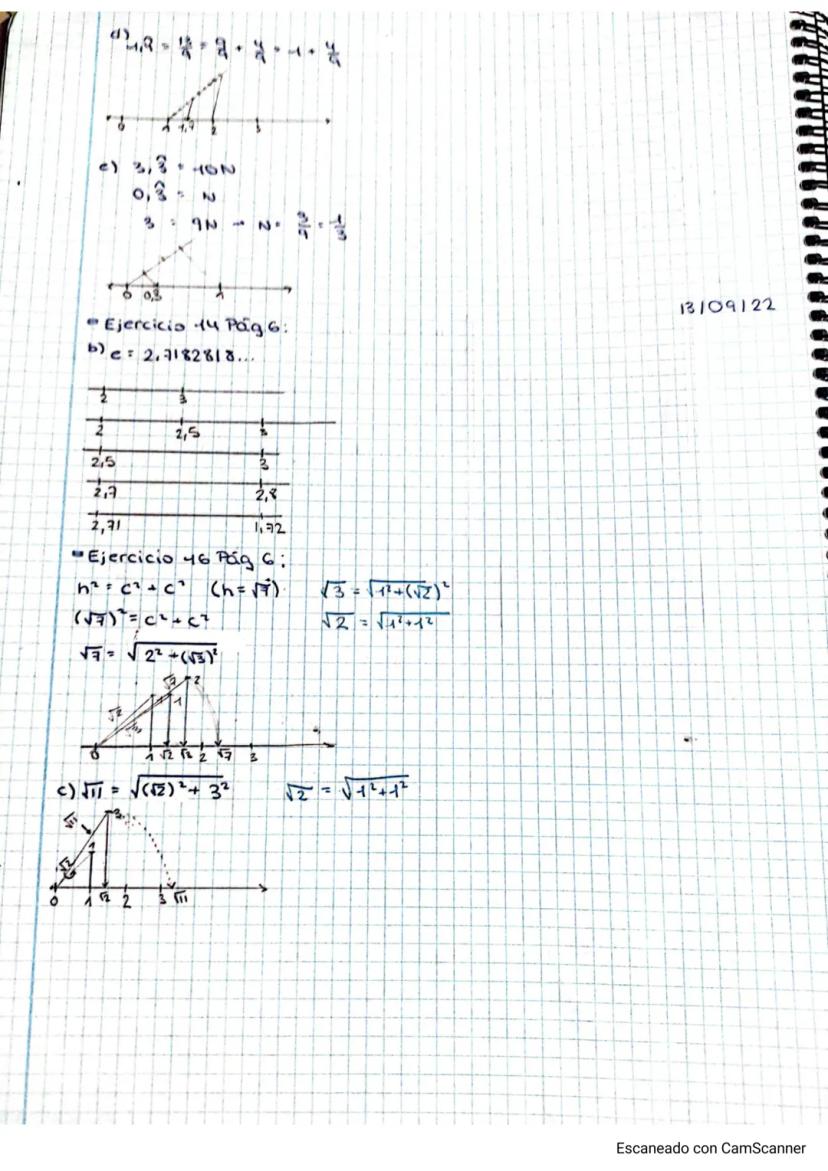 d) 1,4̂ = 13/9 = 9/9 + 4/9 = 1 + 4/9
0 1 1,4 2 3
e) 3,3̂ = 10N
0,3̂ = N
3 = 9N → N = 3/9 = 1/3
0 0,3 1
13/09/22
Ejercicio 14 Pág 6:
b) e = 2,7182818...
2 3
2 2,5 3
2,5 3
2,7 2,8
2,71 1,72
Ejercicio 16 Pág 6:
h² = c² + c² (h = √7) √3 = √1² + (√2)²
(√7)² = c² + c² √2 = √1² + 1²
√7 = √2² + (√3)²
√7 2
√2 1
√3
0 1 √2 √3 2 √7 3
c) √11 = √(√2)² + 3² √2 = √1² + 1²
√11 3
√2 1
0 1 √2 2 3 √11
Escaneado con CamScanner